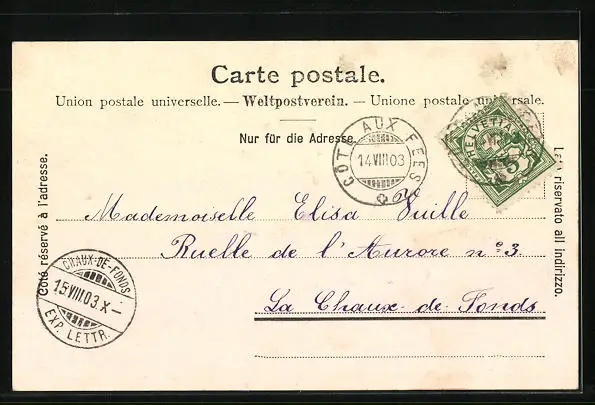 Carte postale.
Union postale universelle. — Weltpostverein. — Unione postale universale.
Nur für die Adresse.
Côté réservé à l'adresse.
Lato riservato all indirizzo.
CÔTE AUX FÉES
14.VIII.03
HELVETIA
5
Mademoiselle Elisa Vuille
Ruelle de l'Aurore n° 3.
La Chaux-de-Fonds
CHAUX-DE-FONDS
15.VIII.03.X—
EXP. LETTR.